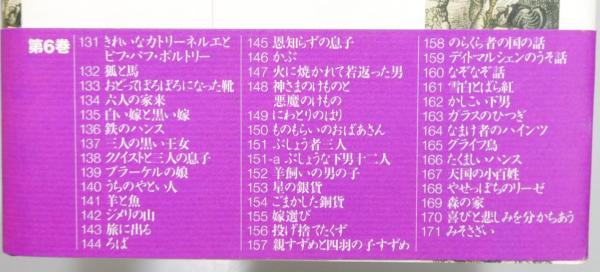 第6巻
131 きれいなカトリーネルエと
ピフ・パフ・ポルトリー
132 狐と馬
133 おどってぼろぼろになった靴
134 六人の家来
135 白い嫁と黒い嫁
136 鉄のハンス
137 三人の黒い王女
138 クノイストと三人の息子
139 ブラーケルの娘
140 うちのやとい人
141 羊と魚
142 ジメリの山
143 旅に出る
144 ろば
145 恩知らずの息子
146 かぶ
147 火に焼かれて若返った男
148 神さまのけものと
悪魔のけもの
149 にわとりのはり
150 ものもらいのおばあさん
151 ぶしょう者三人
151-a ぶしょうな下男十二人
152 羊飼いの男の子
153 星の銀貨
154 ごまかした銅貨
155 嫁選び
156 投げ捨てたくず
157 親すずめと四羽の子すずめ
158 のらくら者の国の話
159 ディトマルシェンのうそ話
160 なぞなぞ話
161 雪白とばら紅
162 かしこい下男
163 ガラスのひつぎ
164 なまけ者のハインツ
165 グライフ鳥
166 たくましいハンス
167 天国の小百姓
168 やせっぽちのリーゼ
169 森の家
170 喜びと悲しみを分かちあう
171 みそさざい